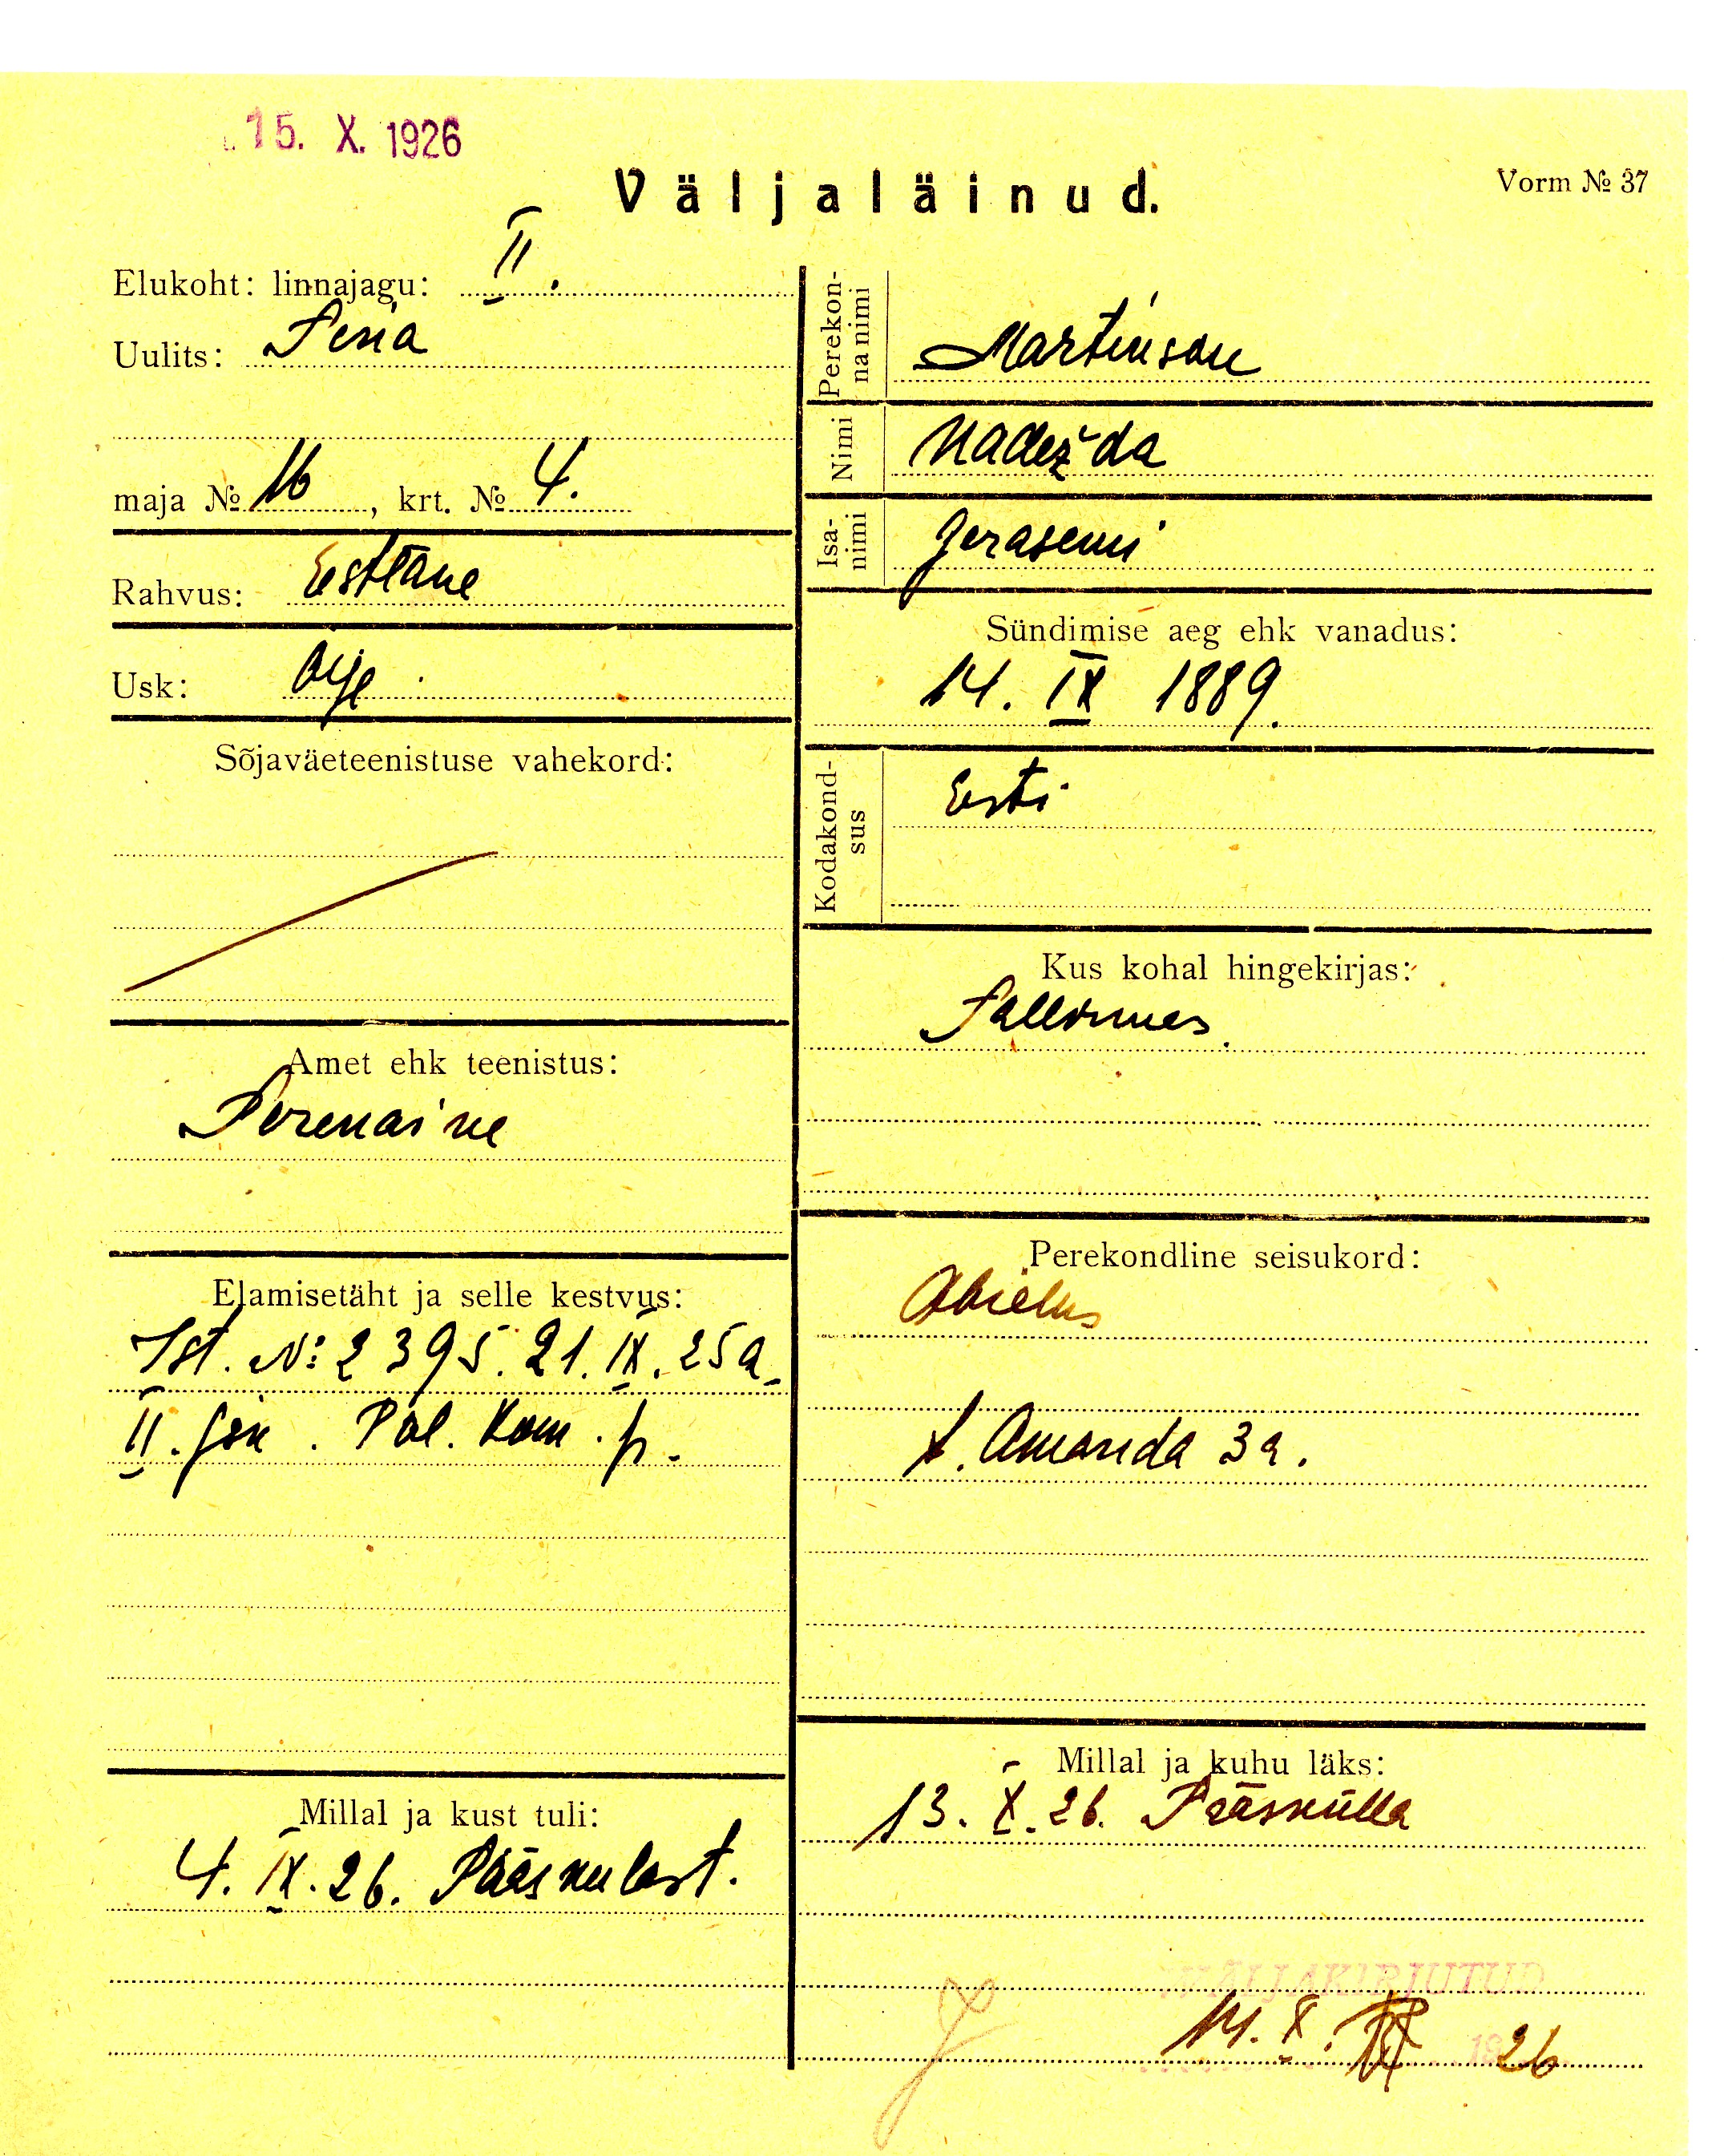 15. X. 1926
Väljaläinud.
Vorm № 37
Elukoht: linnajagu: II.
Uulits:
maja № 16, krt. № 4.
Rahvus: Estlane
Usk: Õige
Sõjaväeteenistuse vahekord:
Amet ehk teenistus:
Perenaine
Elamisetäht ja selle kestvus:
Ist. №: 2395. 21. IX. 25 a.
II. jsk. Pol. Kom. p.
Millal ja kust tuli:
4. IX. 26. Pääskülast.
Perekonna nimi
Martinson
Nimi
Nadežda
Isanimi
Jerasemi
Sündimise aeg ehk vanadus:
14. IX 1889.
Kodakondsus
Eesti
Kus kohal hingekirjas:
Tallinnas.
Perekondline seisukord:
Abielus
t. Amanda 3 a.
Millal ja kuhu läks:
13. X. 26. Pääskülla
VÄLJAKIRJUTUD
14. X. 1926